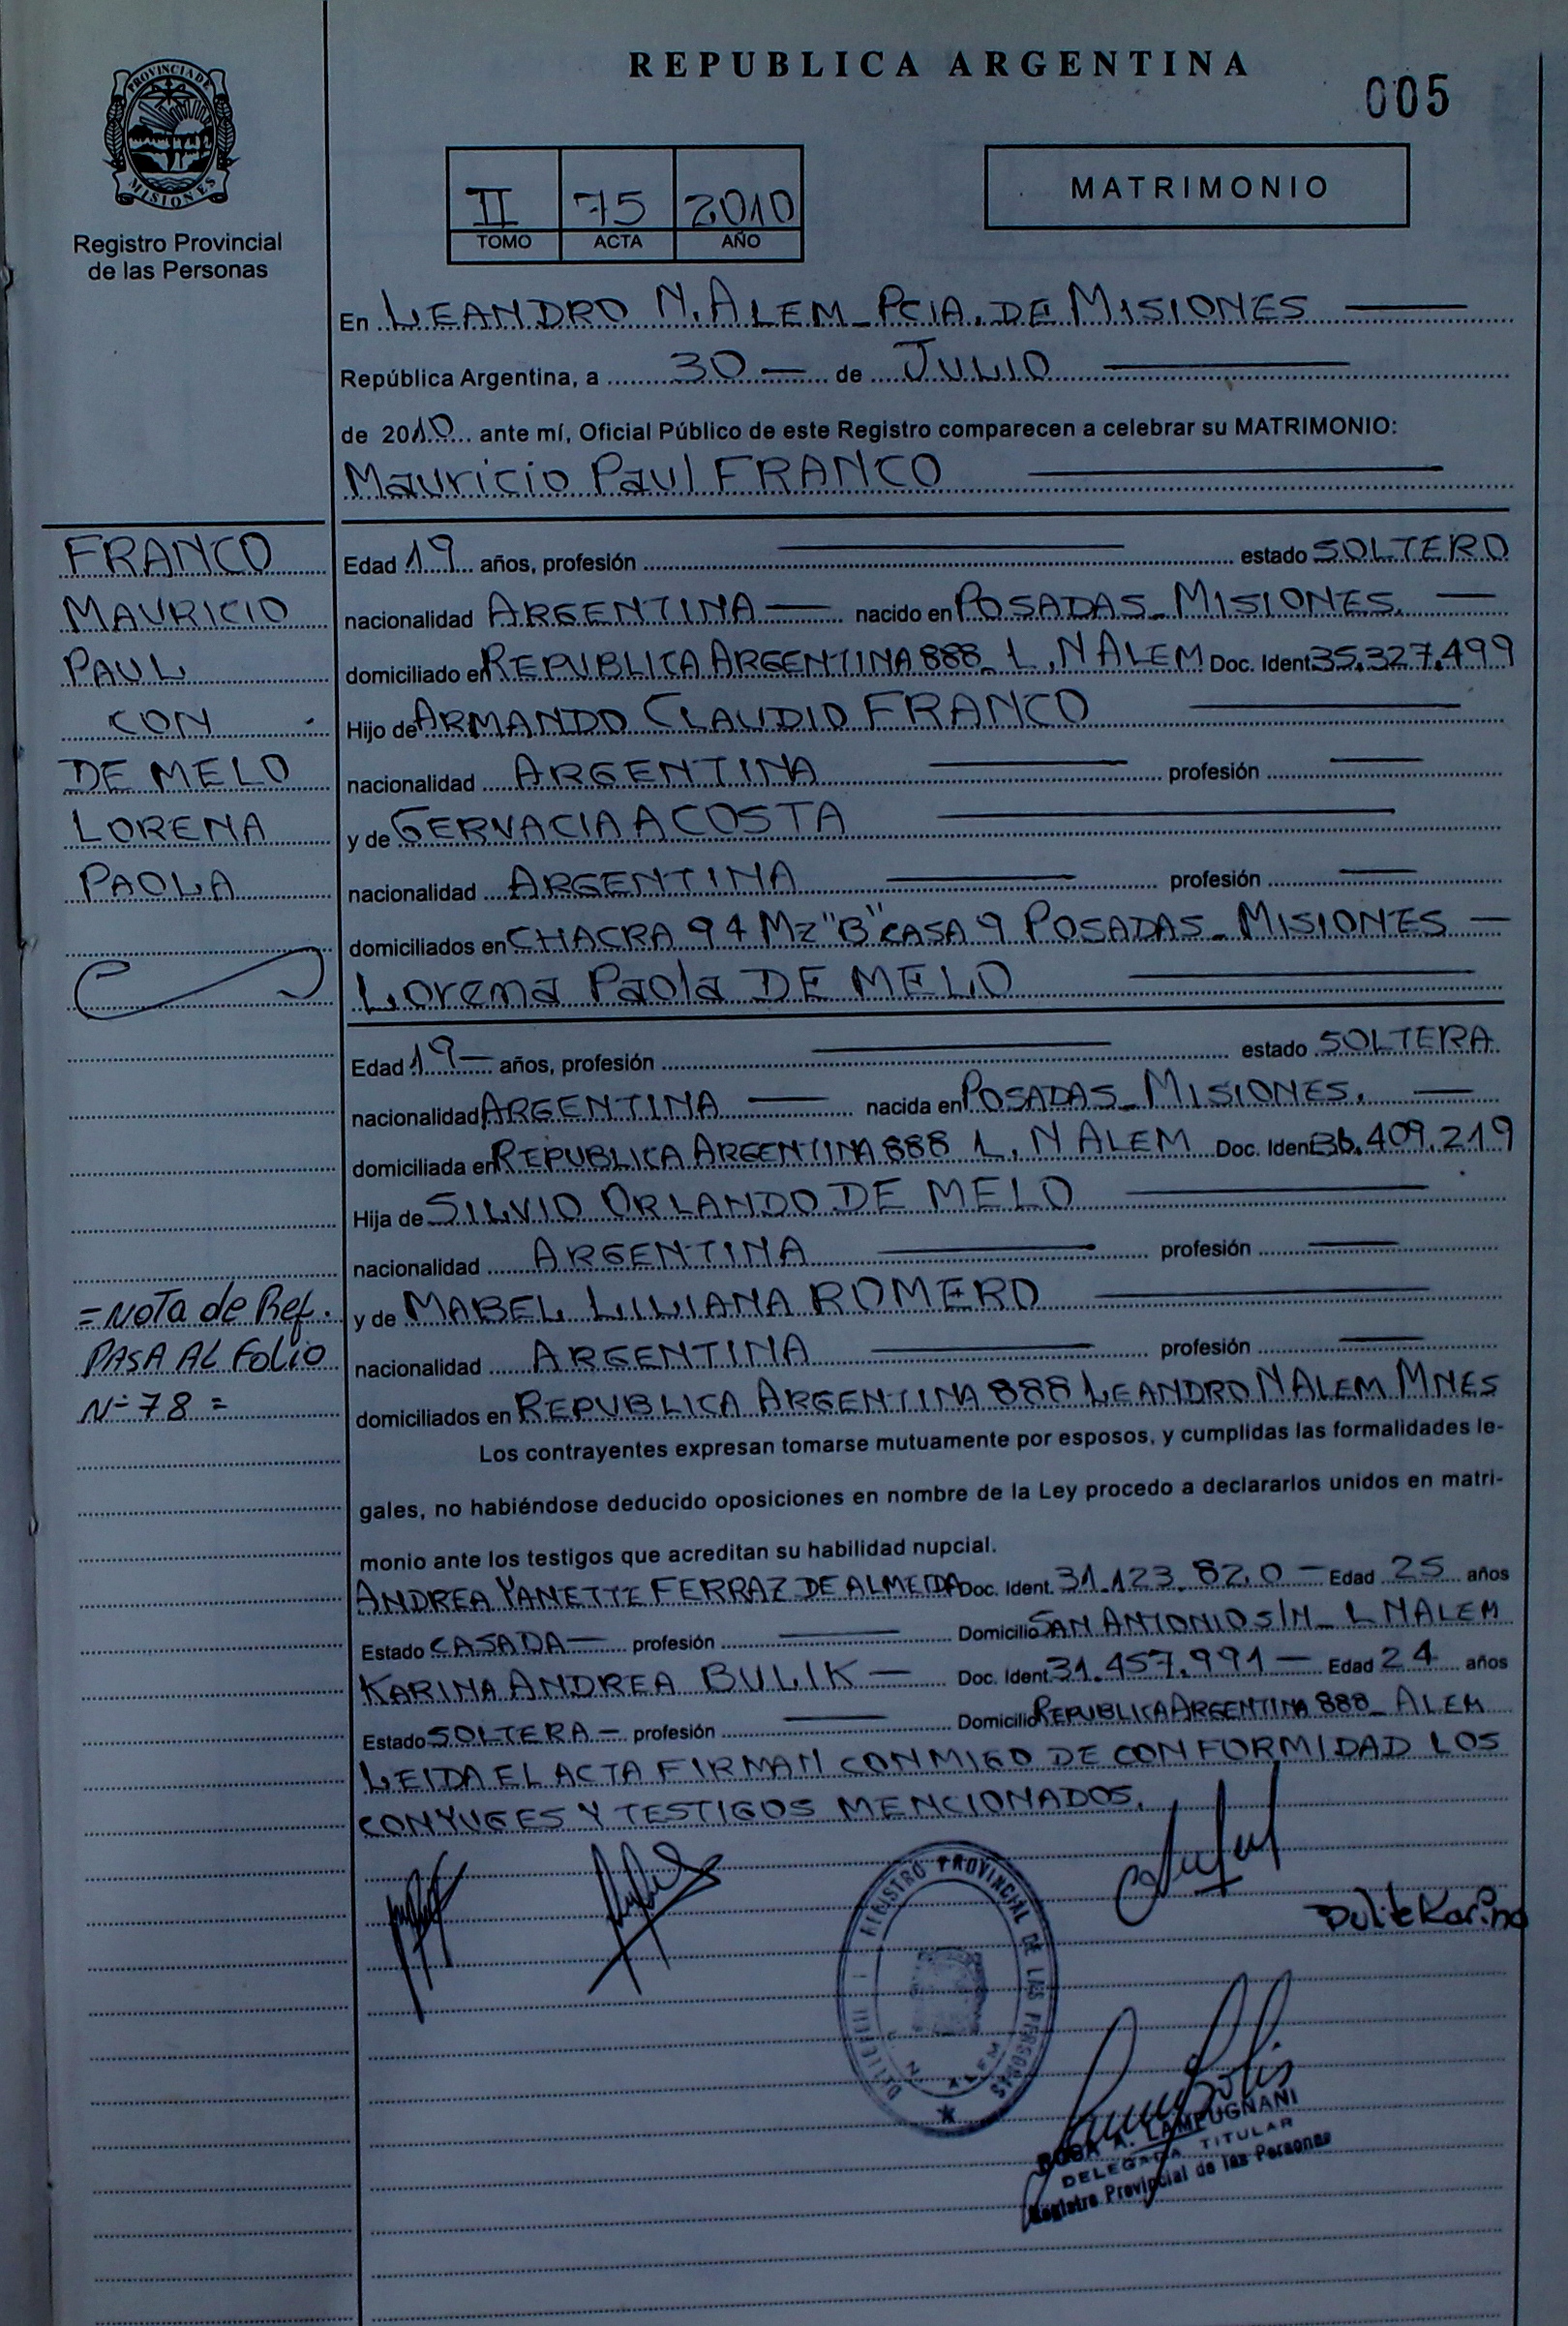 REPUBLICA ARGENTINA
005
PROVINCIA DE
MISIONES
Registro Provincial
de las Personas
II 75 2010
TOMO ACTA AÑO
MATRIMONIO
En LEANDRO N. ALEM_PCIA. DE MISIONES
República Argentina, a 30 — de JULIO
de 2010 ante mí, Oficial Público de este Registro comparecen a celebrar su MATRIMONIO:
Mauricio Paul FRANCO
FRANCO
MAURICIO
PAUL
CON
DE MELO
LORENA
PAOLA
Edad 19 años, profesión — estado SOLTERO
nacionalidad ARGENTINA — nacido en POSADAS_MISIONES. —
domiciliado en REPUBLICA ARGENTINA 888_ L. N ALEM Doc. Ident. 35.327.499
Hijo de ARMANDO CLAUDIO FRANCO
nacionalidad ARGENTINA — profesión —
y de GERVACIA ACOSTA
nacionalidad ARGENTINA — profesión —
domiciliados en CHACRA 94 Mz "B" CASA 9 POSADAS_MISIONES —
Lorena Paola DE MELO
Edad 19 — años, profesión — estado SOLTERA
nacionalidad ARGENTINA — nacida en POSADAS_MISIONES. —
domiciliada en REPUBLICA ARGENTINA 888 L. N ALEM Doc. Ident. 36.409.219
Hija de SILVIO ORLANDO DE MELO
nacionalidad ARGENTINA — profesión —
y de MABEL LILIANA ROMERO
nacionalidad ARGENTINA — profesión —
domiciliados en REPUBLICA ARGENTINA 888 LEANDRO N ALEM MNES
= NOTA de Ref.
PASA AL FOLIO
Nº 78 =
Los contrayentes expresan tomarse mutuamente por esposos, y cumplidas las formalidades le-
gales, no habiéndose deducido oposiciones en nombre de la Ley procedo a declararlos unidos en matri-
monio ante los testigos que acreditan su habilidad nupcial.
ANDREA YANETTE FERRAZ DE ALMEIDA Doc. Ident. 31.123.820 — Edad 25 años
Estado CASADA — profesión — Domicilio SAN ANTONIO S/N_ L N ALEM
KARINA ANDREA BULIK — Doc. Ident. 31.457.991 — Edad 24 años
Estado SOLTERA — profesión — Domicilio REPUBLICA ARGENTINA 888_ ALEM
LEIDA EL ACTA FIRMAN CONMIGO DE CONFORMIDAD LOS
CONYUGES Y TESTIGOS MENCIONADOS.
REGISTRO PROVINCIAL DE LAS PERSONAS
N. ALEM
Karina
ROSA A. LAMPUGNANI
DELEGADA TITULAR
Registro Provincial de las Personas